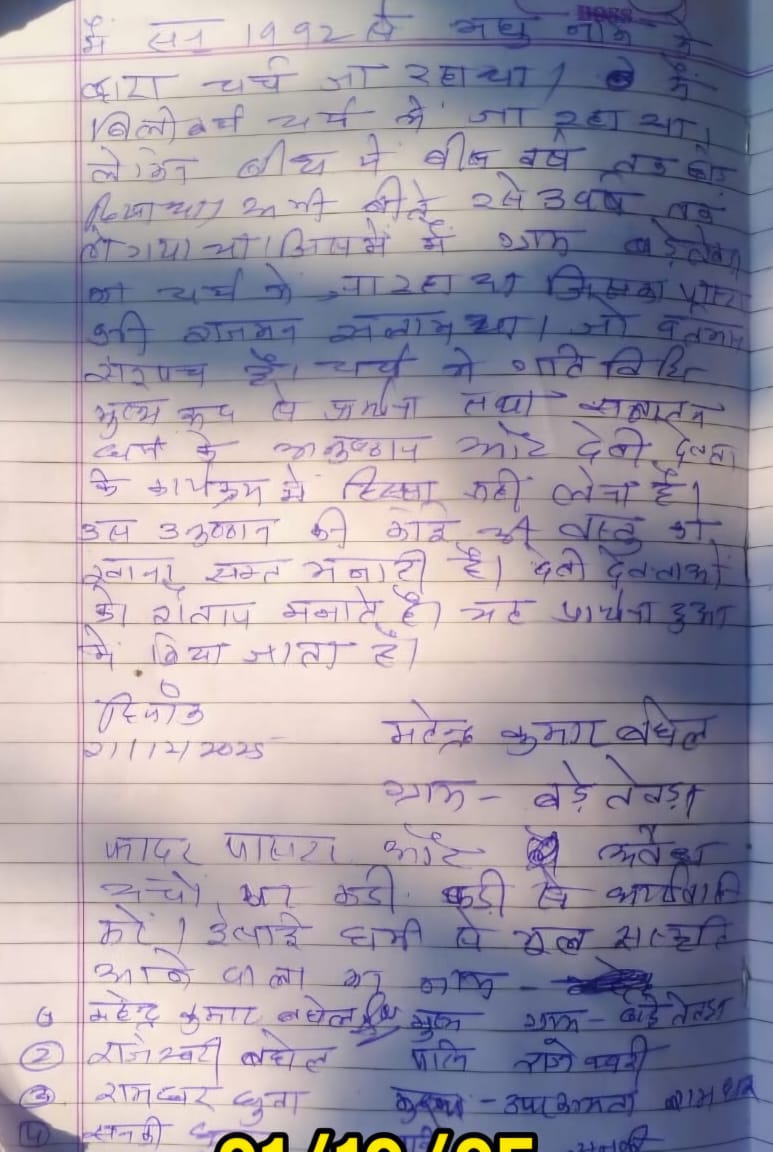 BOSS
मैं सन 1992 से मधु नाम के
द्वारा चर्च जा रहा था। मैं
बिलीवर्स चर्च में जा रहा था।
लेकिन बीच में बीस वर्ष तक छोड़
दिया था। अभी बीते 2 से 3 वर्ष तक
में गया था। जिसमें मैं ग्राम बड़े तेवड़ा
का चर्च में जा रहा था जिसका पास्टर
श्री राजमन सलाम था। जो वर्तमान
सरपंच है। चर्च में गतिविधि
मुख्य रूप से प्रार्थना तथा सनातन
धर्म के अनुष्ठान और देवी देवता
के कार्यक्रम में हिस्सा नहीं लेना है।
उस अनुष्ठान की कोई भी वस्तु को
खाना सख्त मनाही है। देवी देवताओं
को शैतान मनाते है। यह प्रार्थना दुआ
में किया जाता है।
दिनांक
21/12/2025
महेन्द्र कुमार बघेल
ग्राम - बड़े तेवड़ा
फादर पास्टर और अवैध
चर्चो पर कड़ी कड़ी से कार्यवाही
करें। ईसाई धर्म से मूल संस्कृति
आने वाला का नाम -
महेन्द्र कुमार बघेल ग्राम - बड़े तेवड़ा
② राजेश्वरी बघेल पति
③ रामधर ध्रुवा
④ सनकी
21/12/25